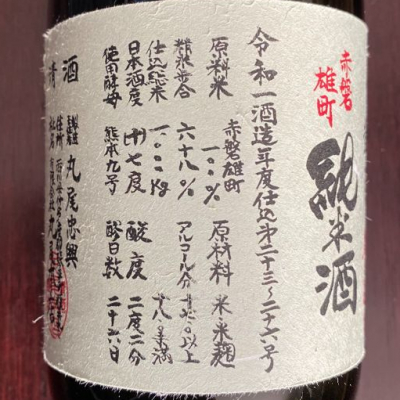 赤磐
雄町
純米酒
令和一酒造年度仕込第二十三～二十六号
原料米 赤磐雄町 一〇〇% 原材料 米・米麹
精米歩合 六十八% アルコール分
以上
仕込総米 一〇〇〇kg
未満
日本酒度 (+)七度 酸度 二度二分
使用酵母 熊本九号 醪日数 二十六日
清酒
丸尾忠興